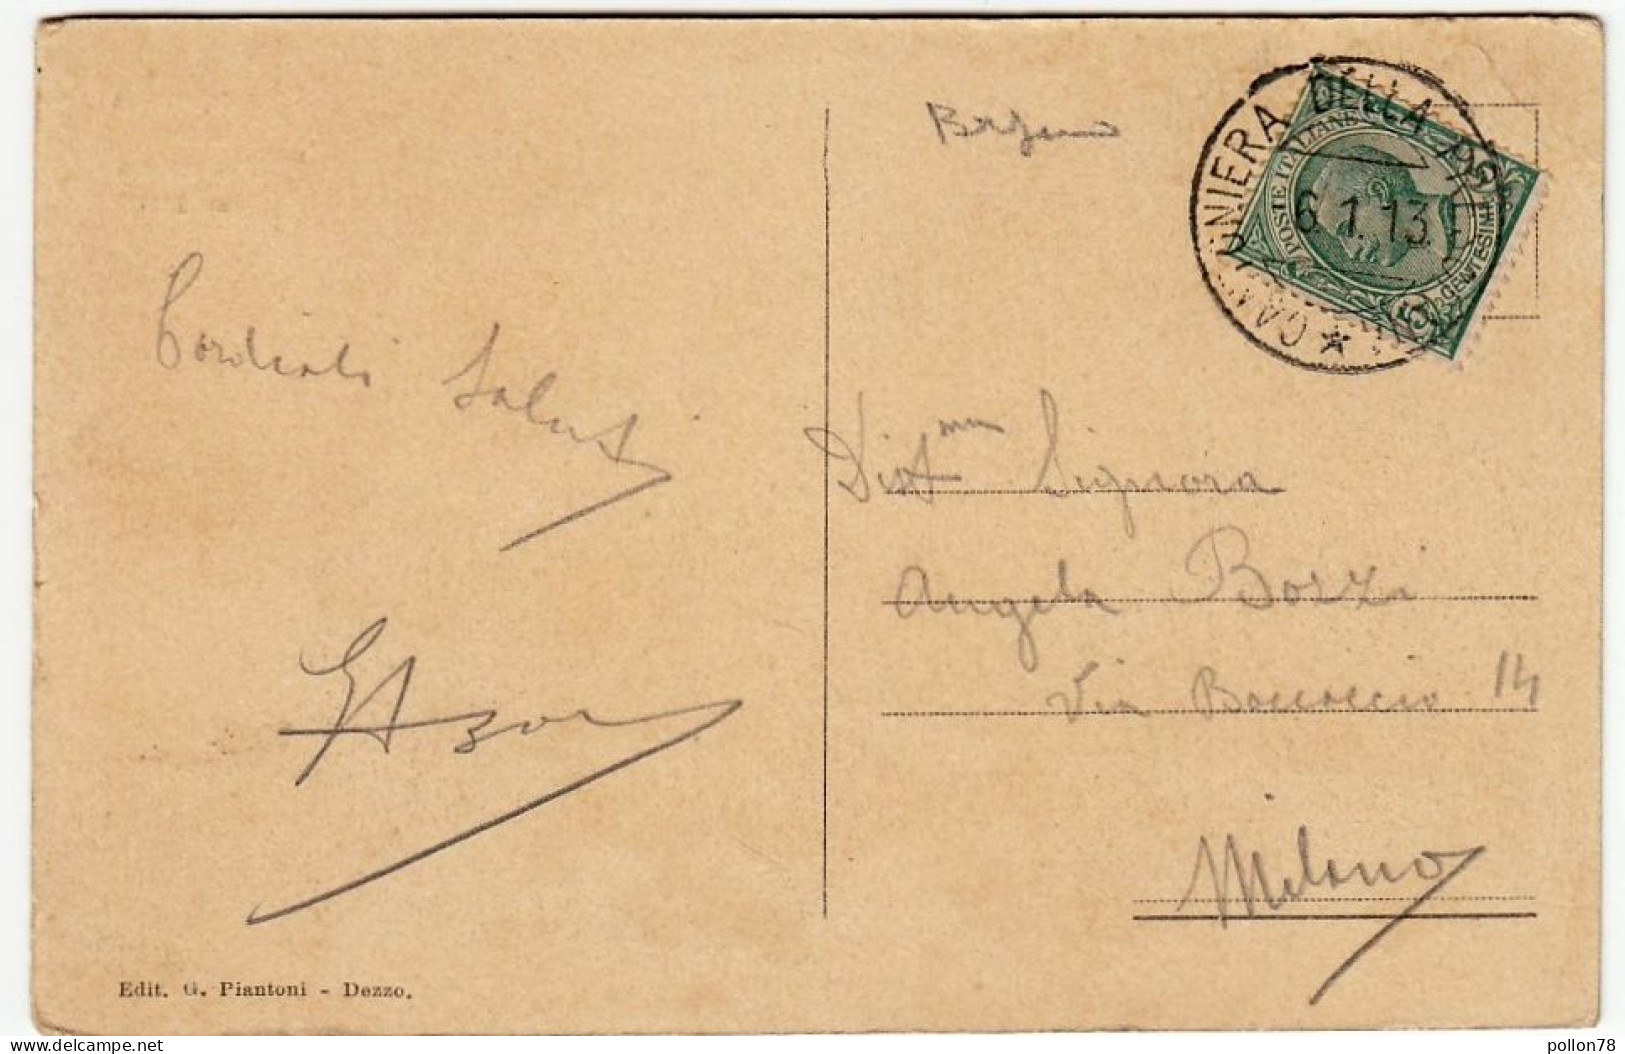 Bergamo
CANTONIERA DELLA
6.1.13
POSTE ITALIANE
CENTESIMI
5
Cordiali Saluti
Dist.ma Signora
Angela Bozzi
Via Boccaccio 14
Milano
Edit. G. Piantoni - Dezzo.
pollon78
delcampe.net